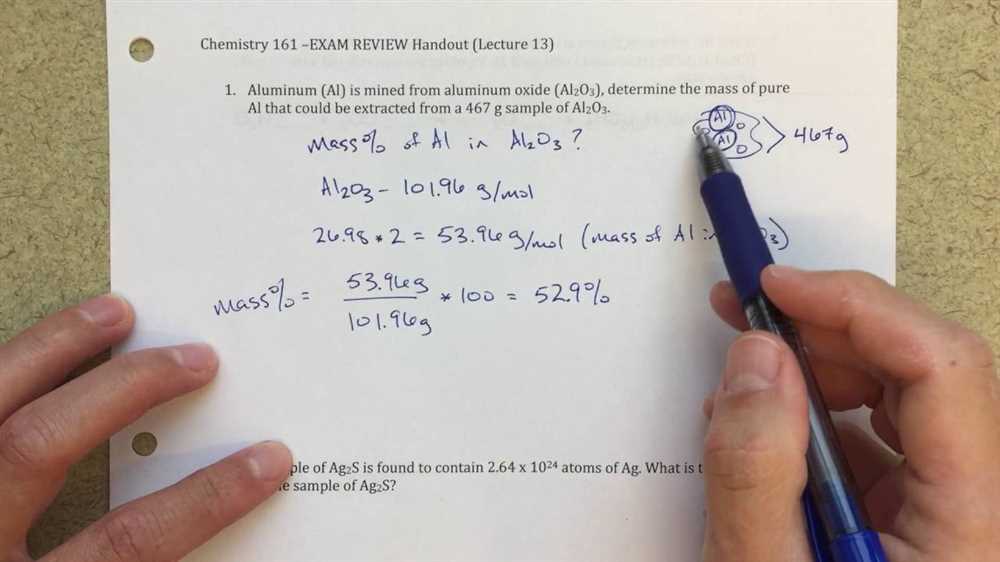 Chemistry 161 –EXAM REVIEW Handout (Lecture 13)
1. Aluminum (Al) is mined from aluminum oxide (Al₂O₃), determine the mass of pure
Al that could be extracted from a 467 g sample of Al₂O₃.
Al O
Al O
467g
Mass% of Al in Al₂O₃?
Al₂O₃ - 101.96 g/mol
26.98 * 2 = 53.96 g/mol (mass of Al in O₃)
mass% = 53.96g / 101.96g * 100 = 52.9%
of Ag₂S is found to contain 2.64 x 10²⁴ atoms of Ag. What is
sample of Ag₂S?